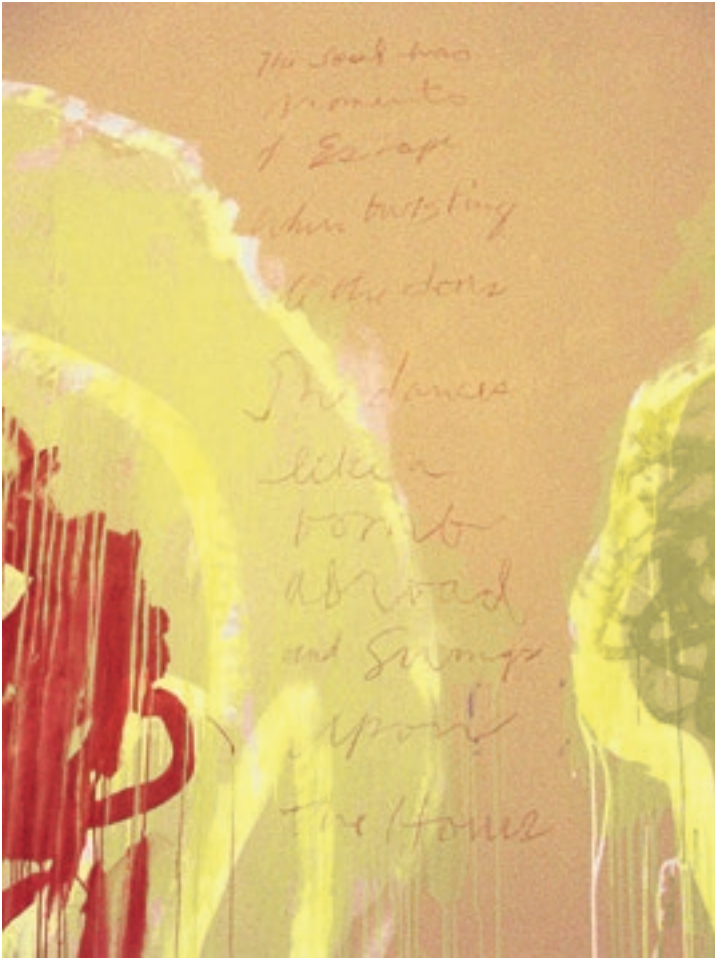 The Soul has
moments
of Escape
When bursting
all the doors
She dances
like a
bomb
abroad
and Swings
upon
The Hours